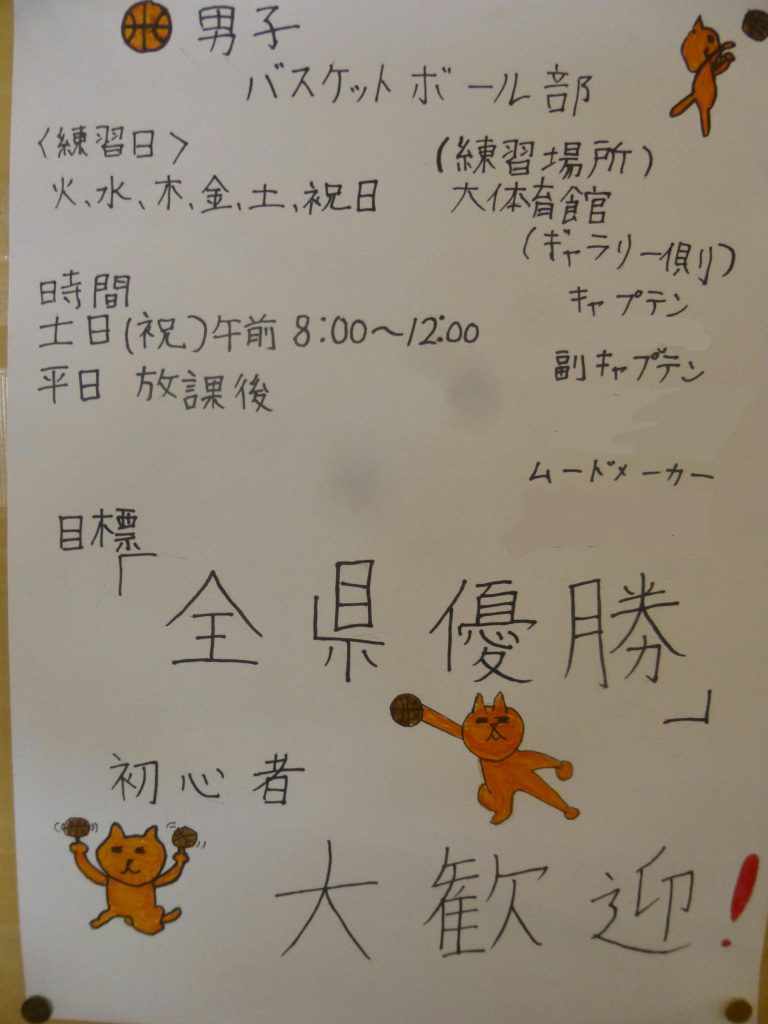 男子
バスケットボール部
〈練習日〉
火、水、木、金、土、祝日
(練習場所)
大体育館
(ギャラリー側)
時間
土日(祝)午前 8:00〜12:00
平日 放課後
キャプテン
副キャプテン
ムードメーカー
目標
「全県優勝」
初心者
大歓迎!